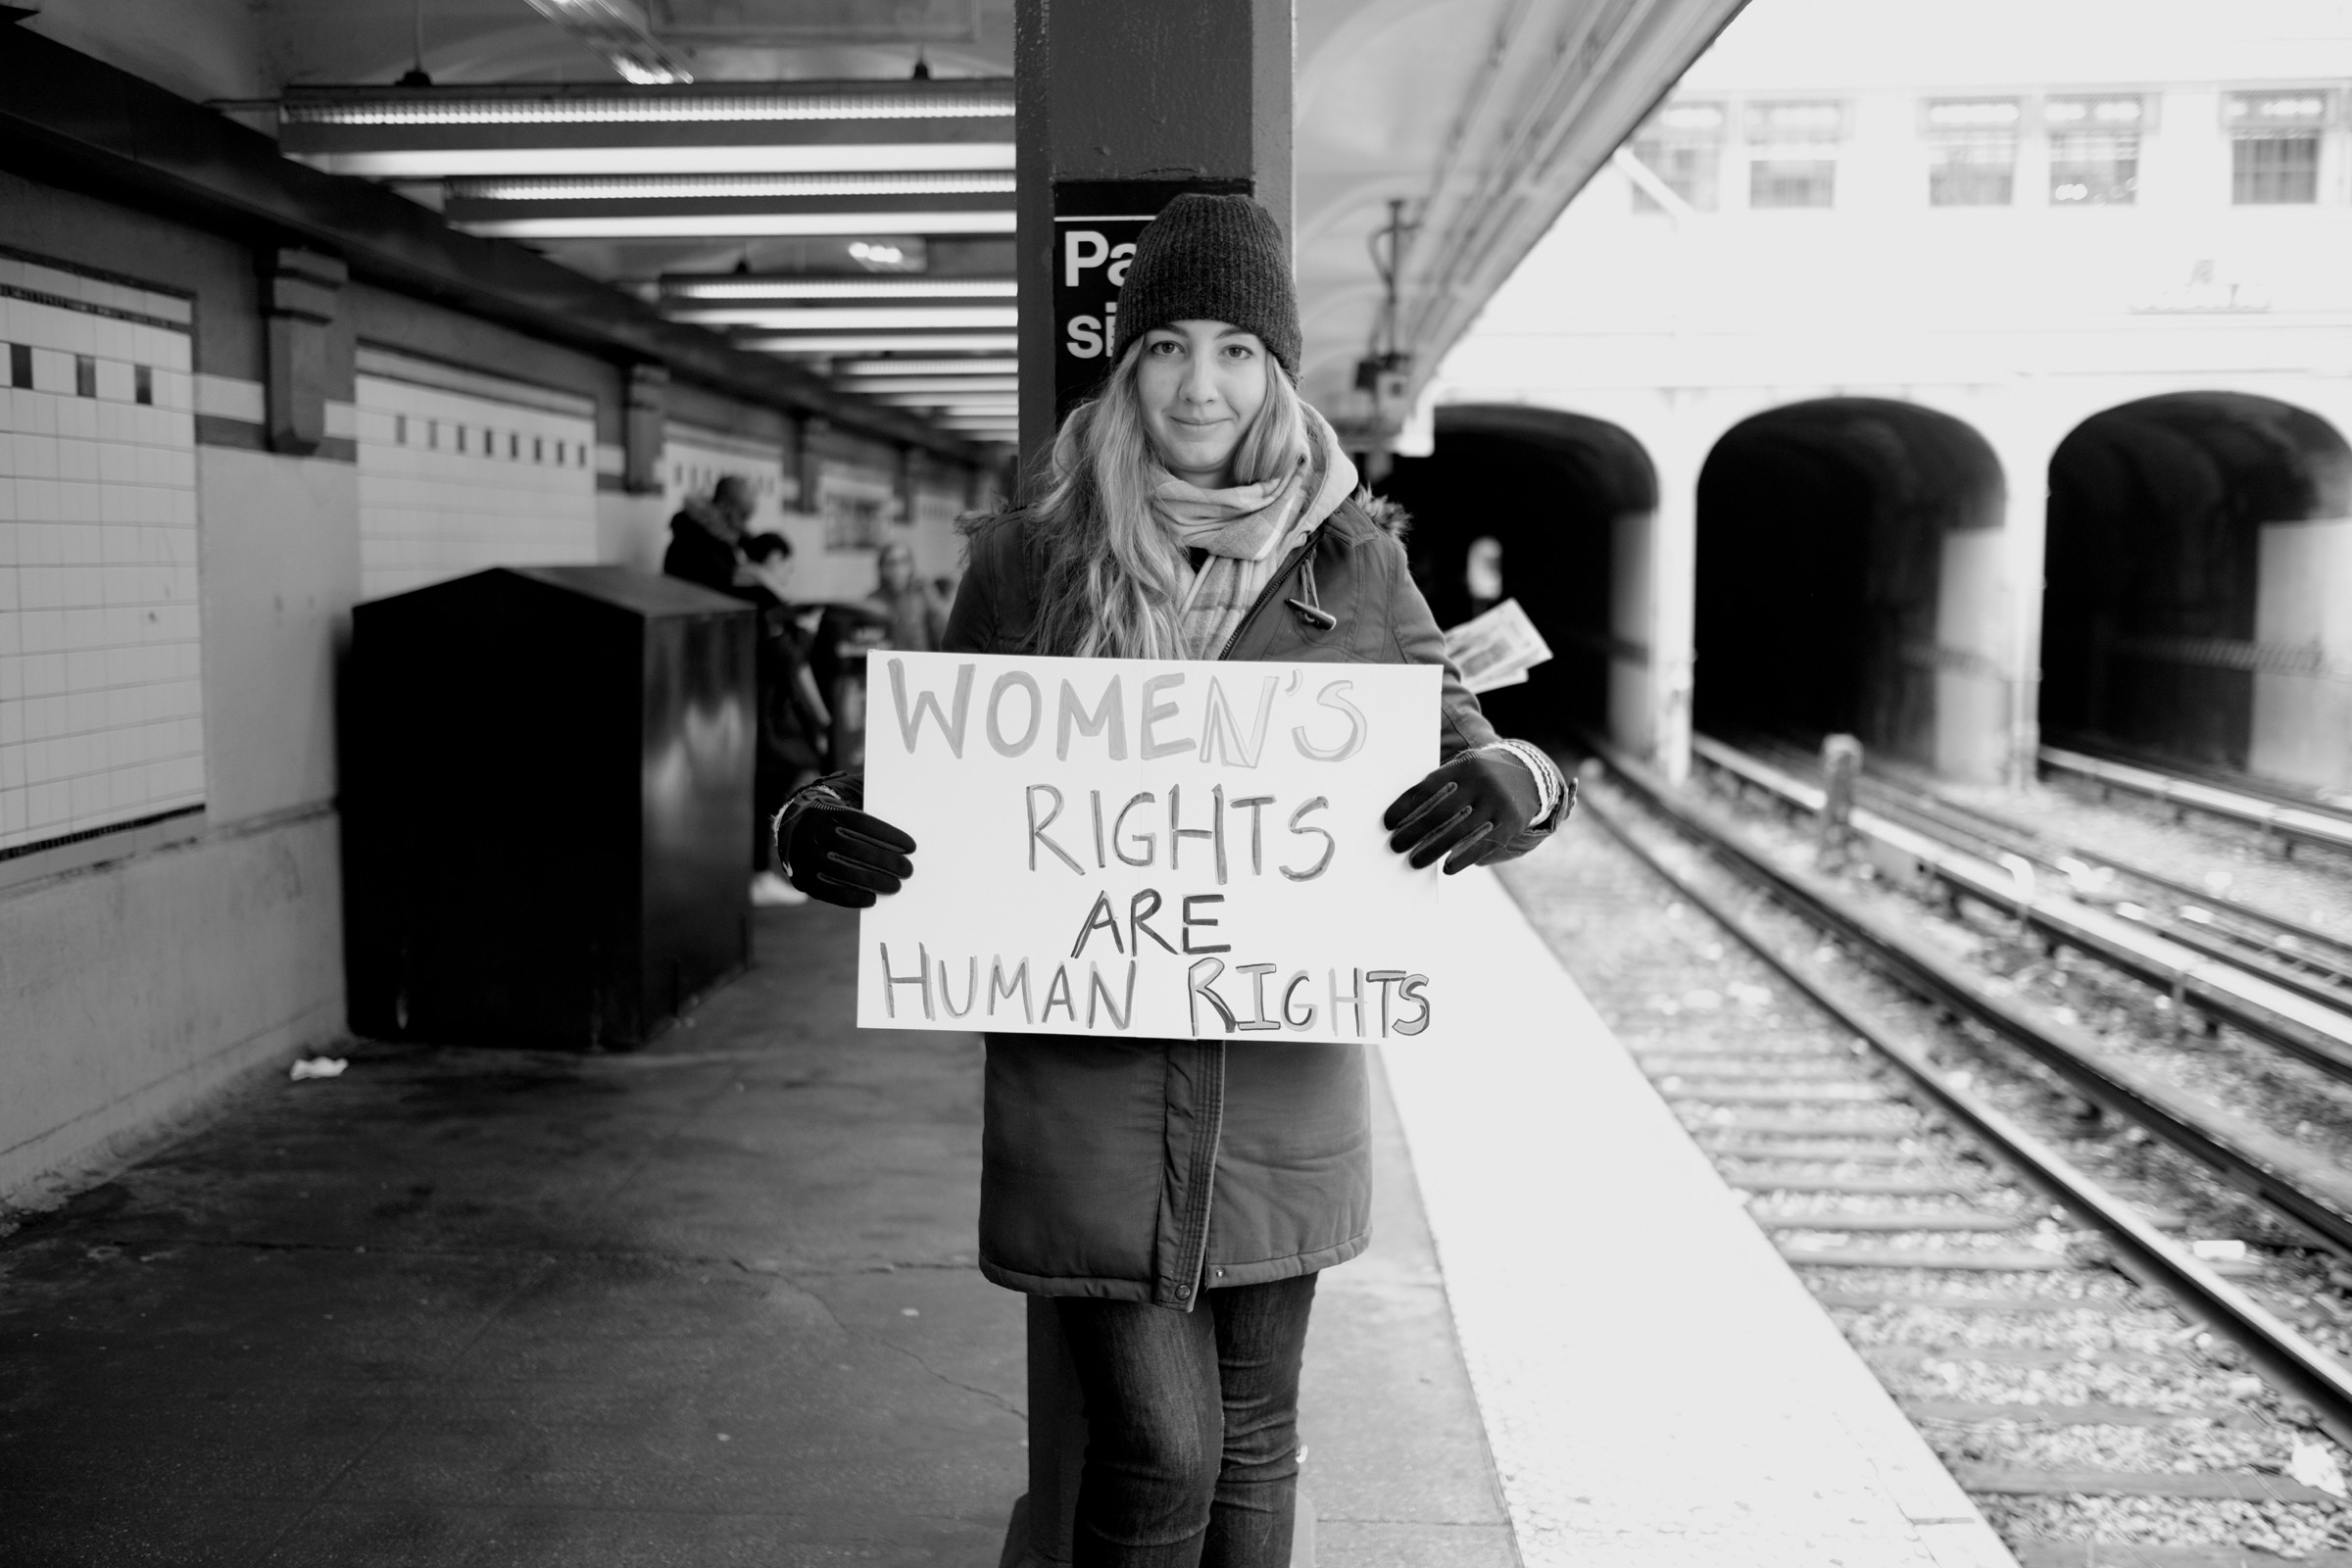 Pa
si
WOMEN'S
RIGHTS
ARE
HUMAN RIGHTS